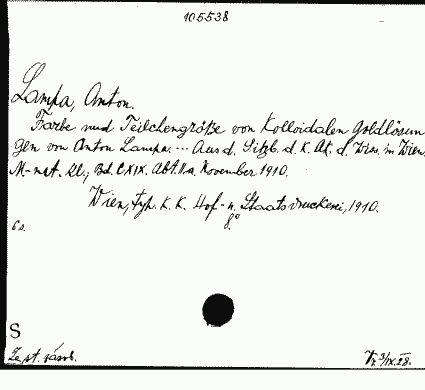 105538
Lampa, Anton.
Farbe und Teilchengröße von Kolloidalen Goldlösun
gen von Anton Lampa. ... Aus d. Sitzb. d. K. Ak. d. Wiss. in Wien,
M.-nat. Kl., Bd. CXIX. Abt. II.a. November 1910.
Wien, Typ. K. K. Hof- u. Staatsdruckerei, 1910.
8°
6 s.
S